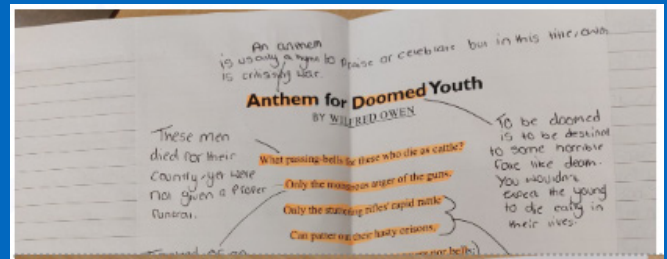 An anmem
is usually a hyme to praise or celebrate but in this title, owen
is critising war.
Anthem for Doomed Youth
BY WILFRED OWEN
These men
died for their
country yet were
not given a proper
funeral.
What passing-bells for these who die as cattle?
Only the monstrous anger of the guns.
Only the stuttering rifles' rapid rattle
Can patter out their hasty orisons.
nor bells;
To be doomed
is to be destined
to some horrible
fate like death.
You wouldn't
expect the young
to die early in
their lives.